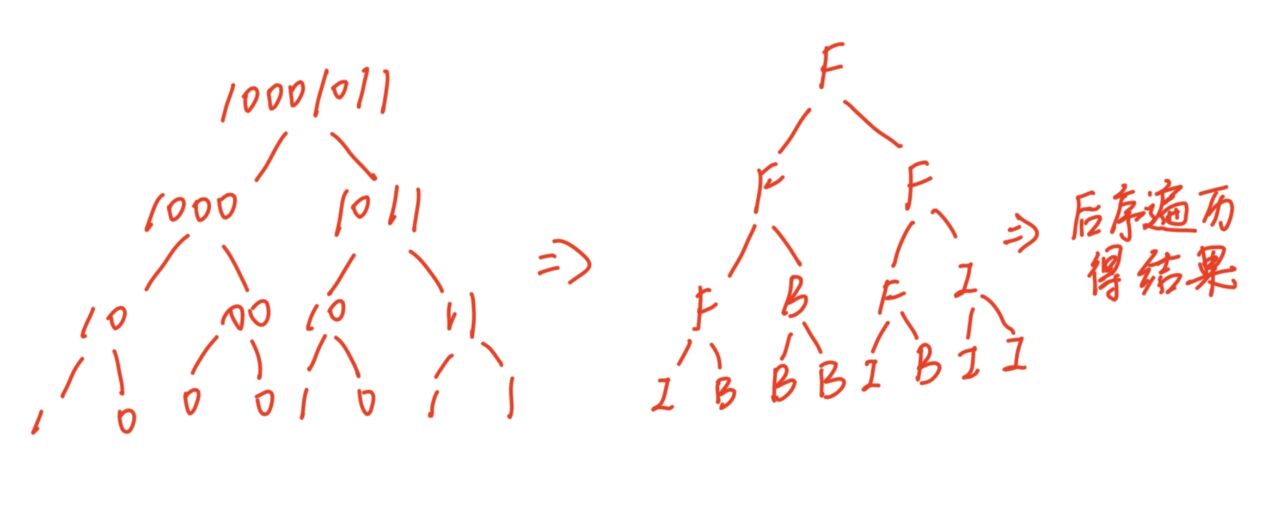 10001011
1000 1011
10 00 10 11
1 0 0 0 1 0 1 1
F
F F
F B F I
I B B B I B I I
⇒
⇒ 后序遍历
得结果